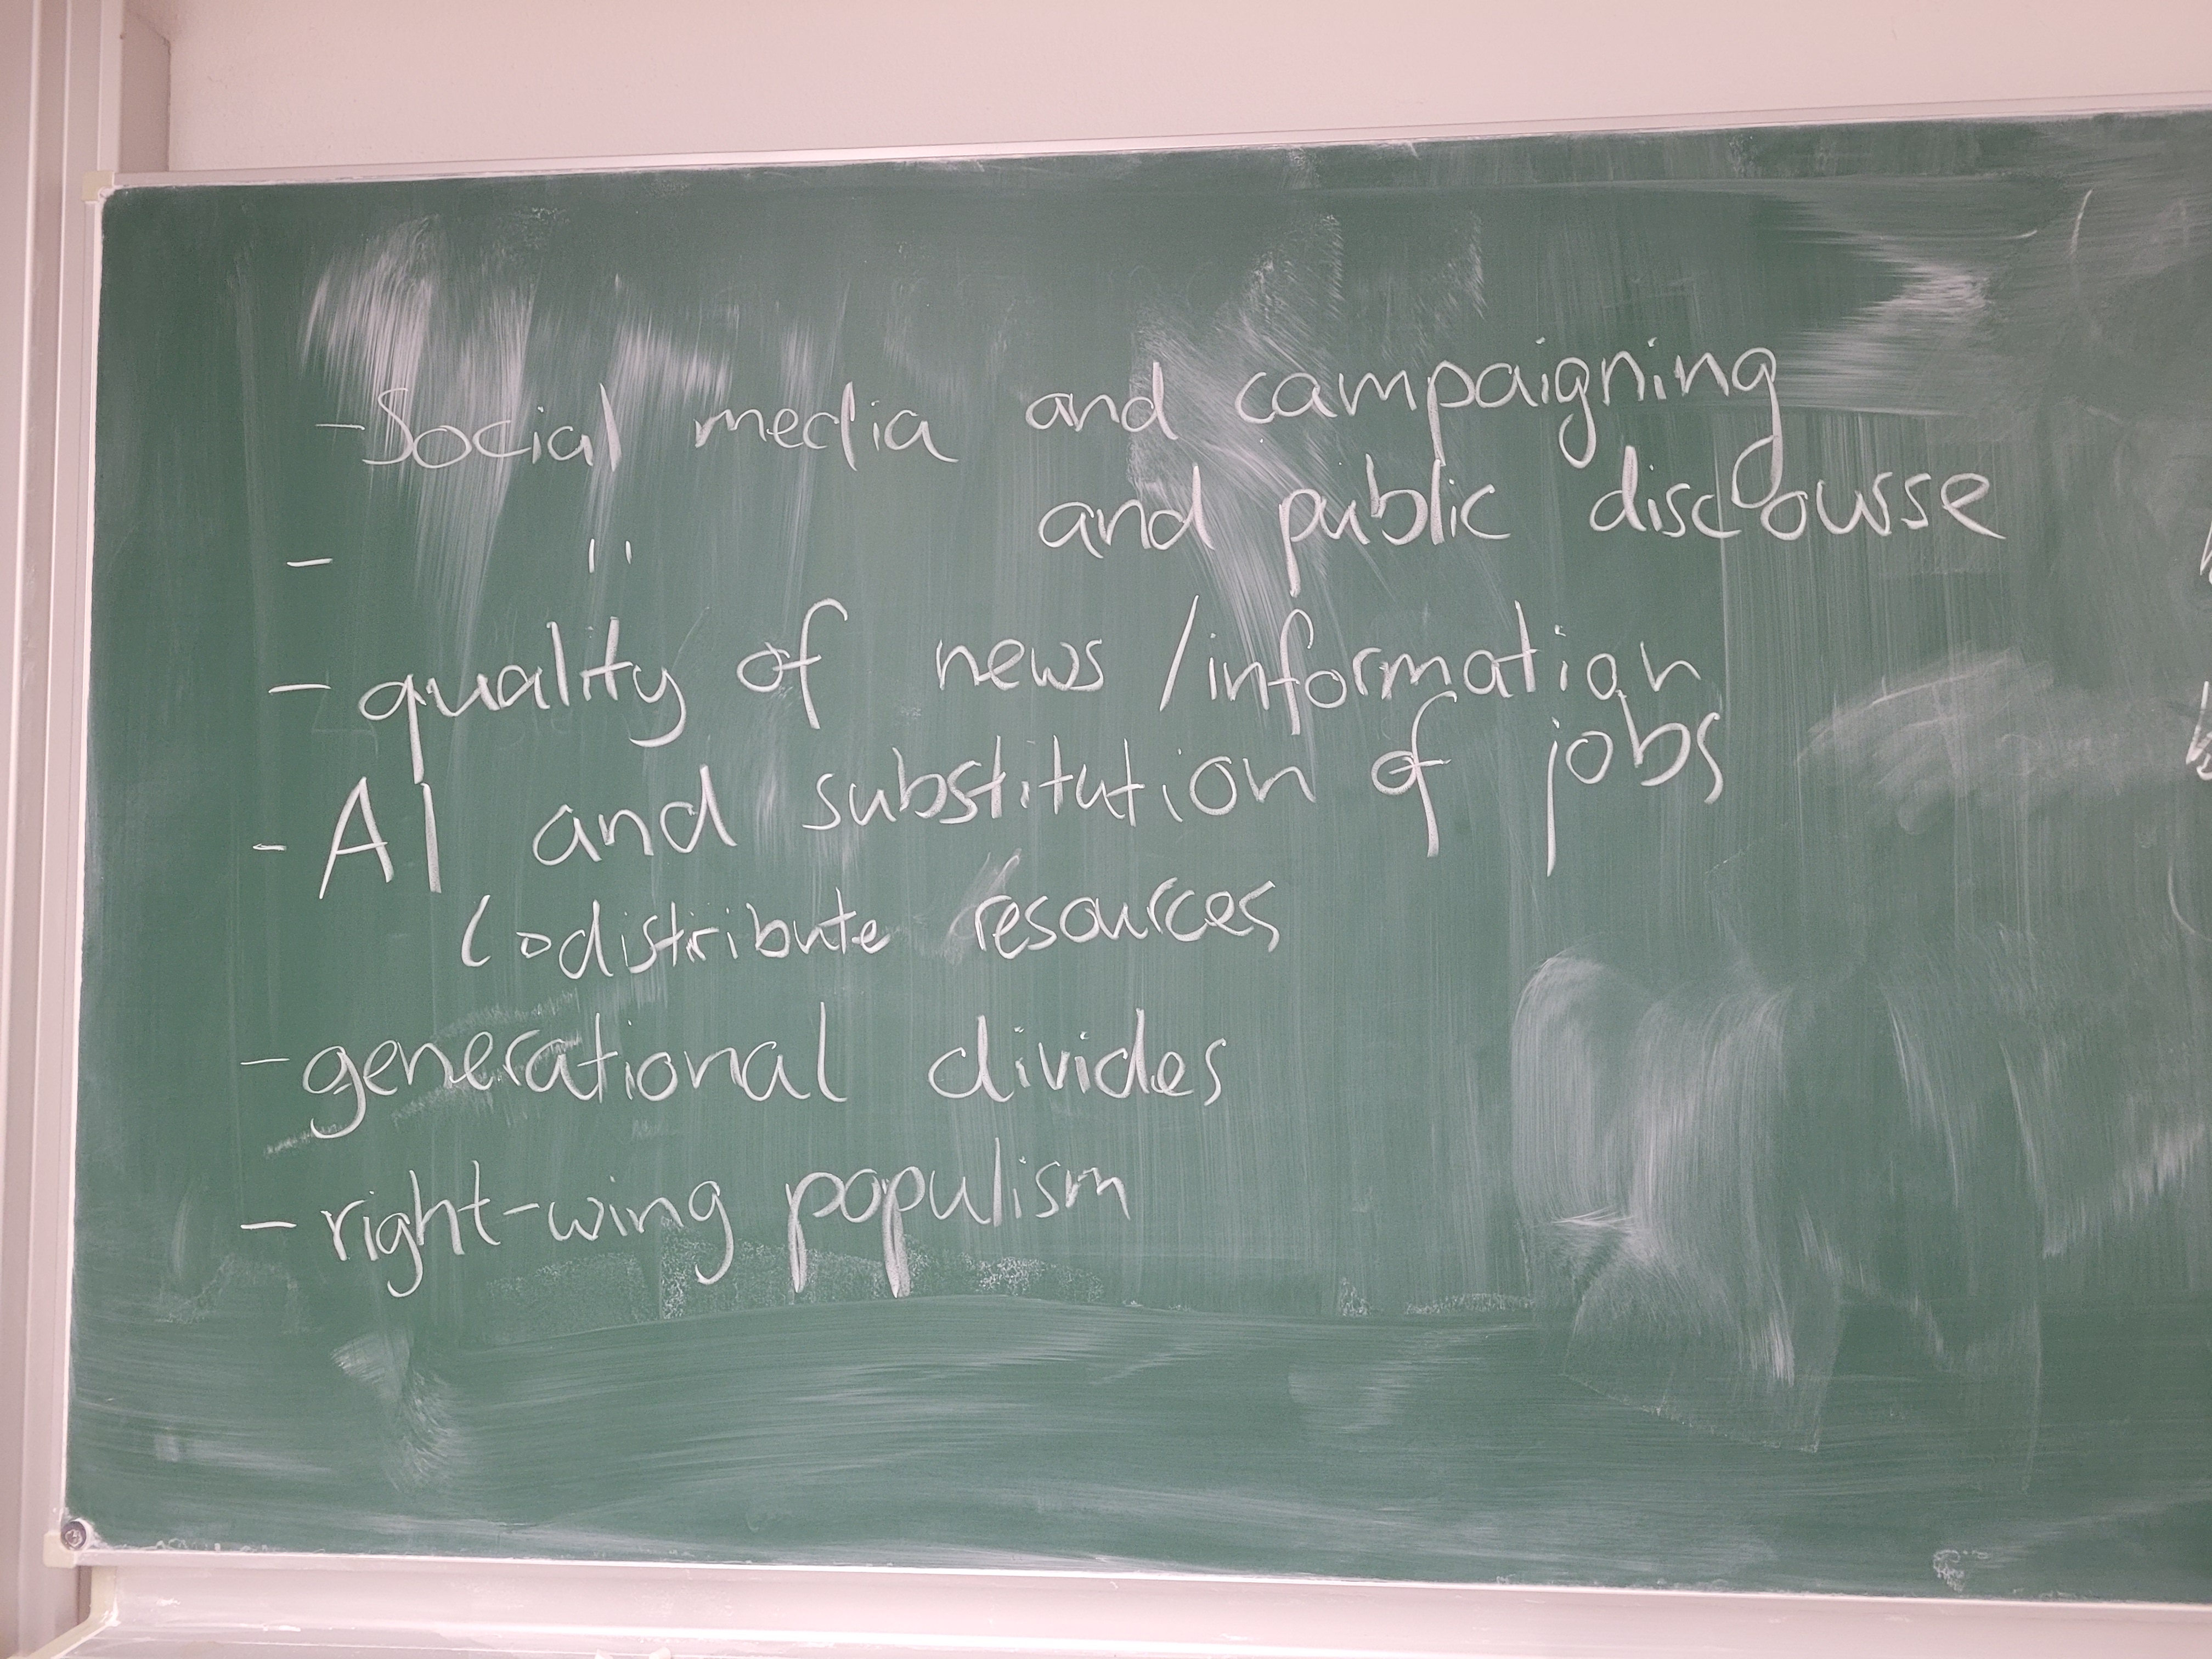 - Social media and campaigning
- " and public discourse
- quality of news / information
- AI and substitution of jobs
↳ distribute resources
- generational divides
- right-wing populism